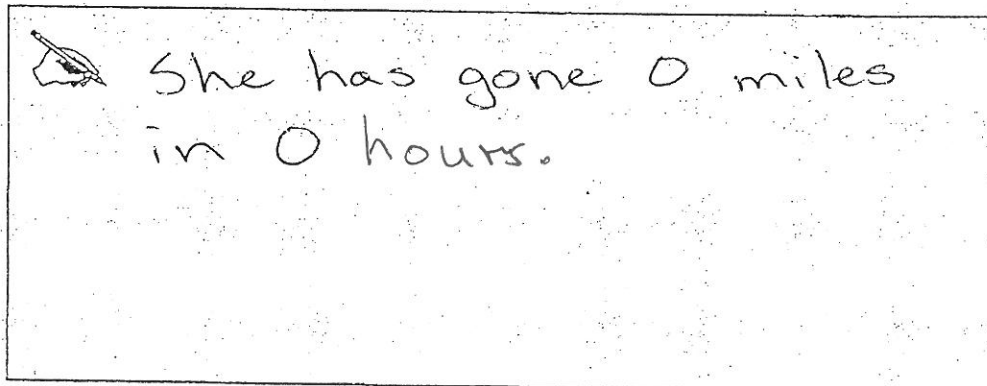 She has gone 0 miles
in 0 hours.